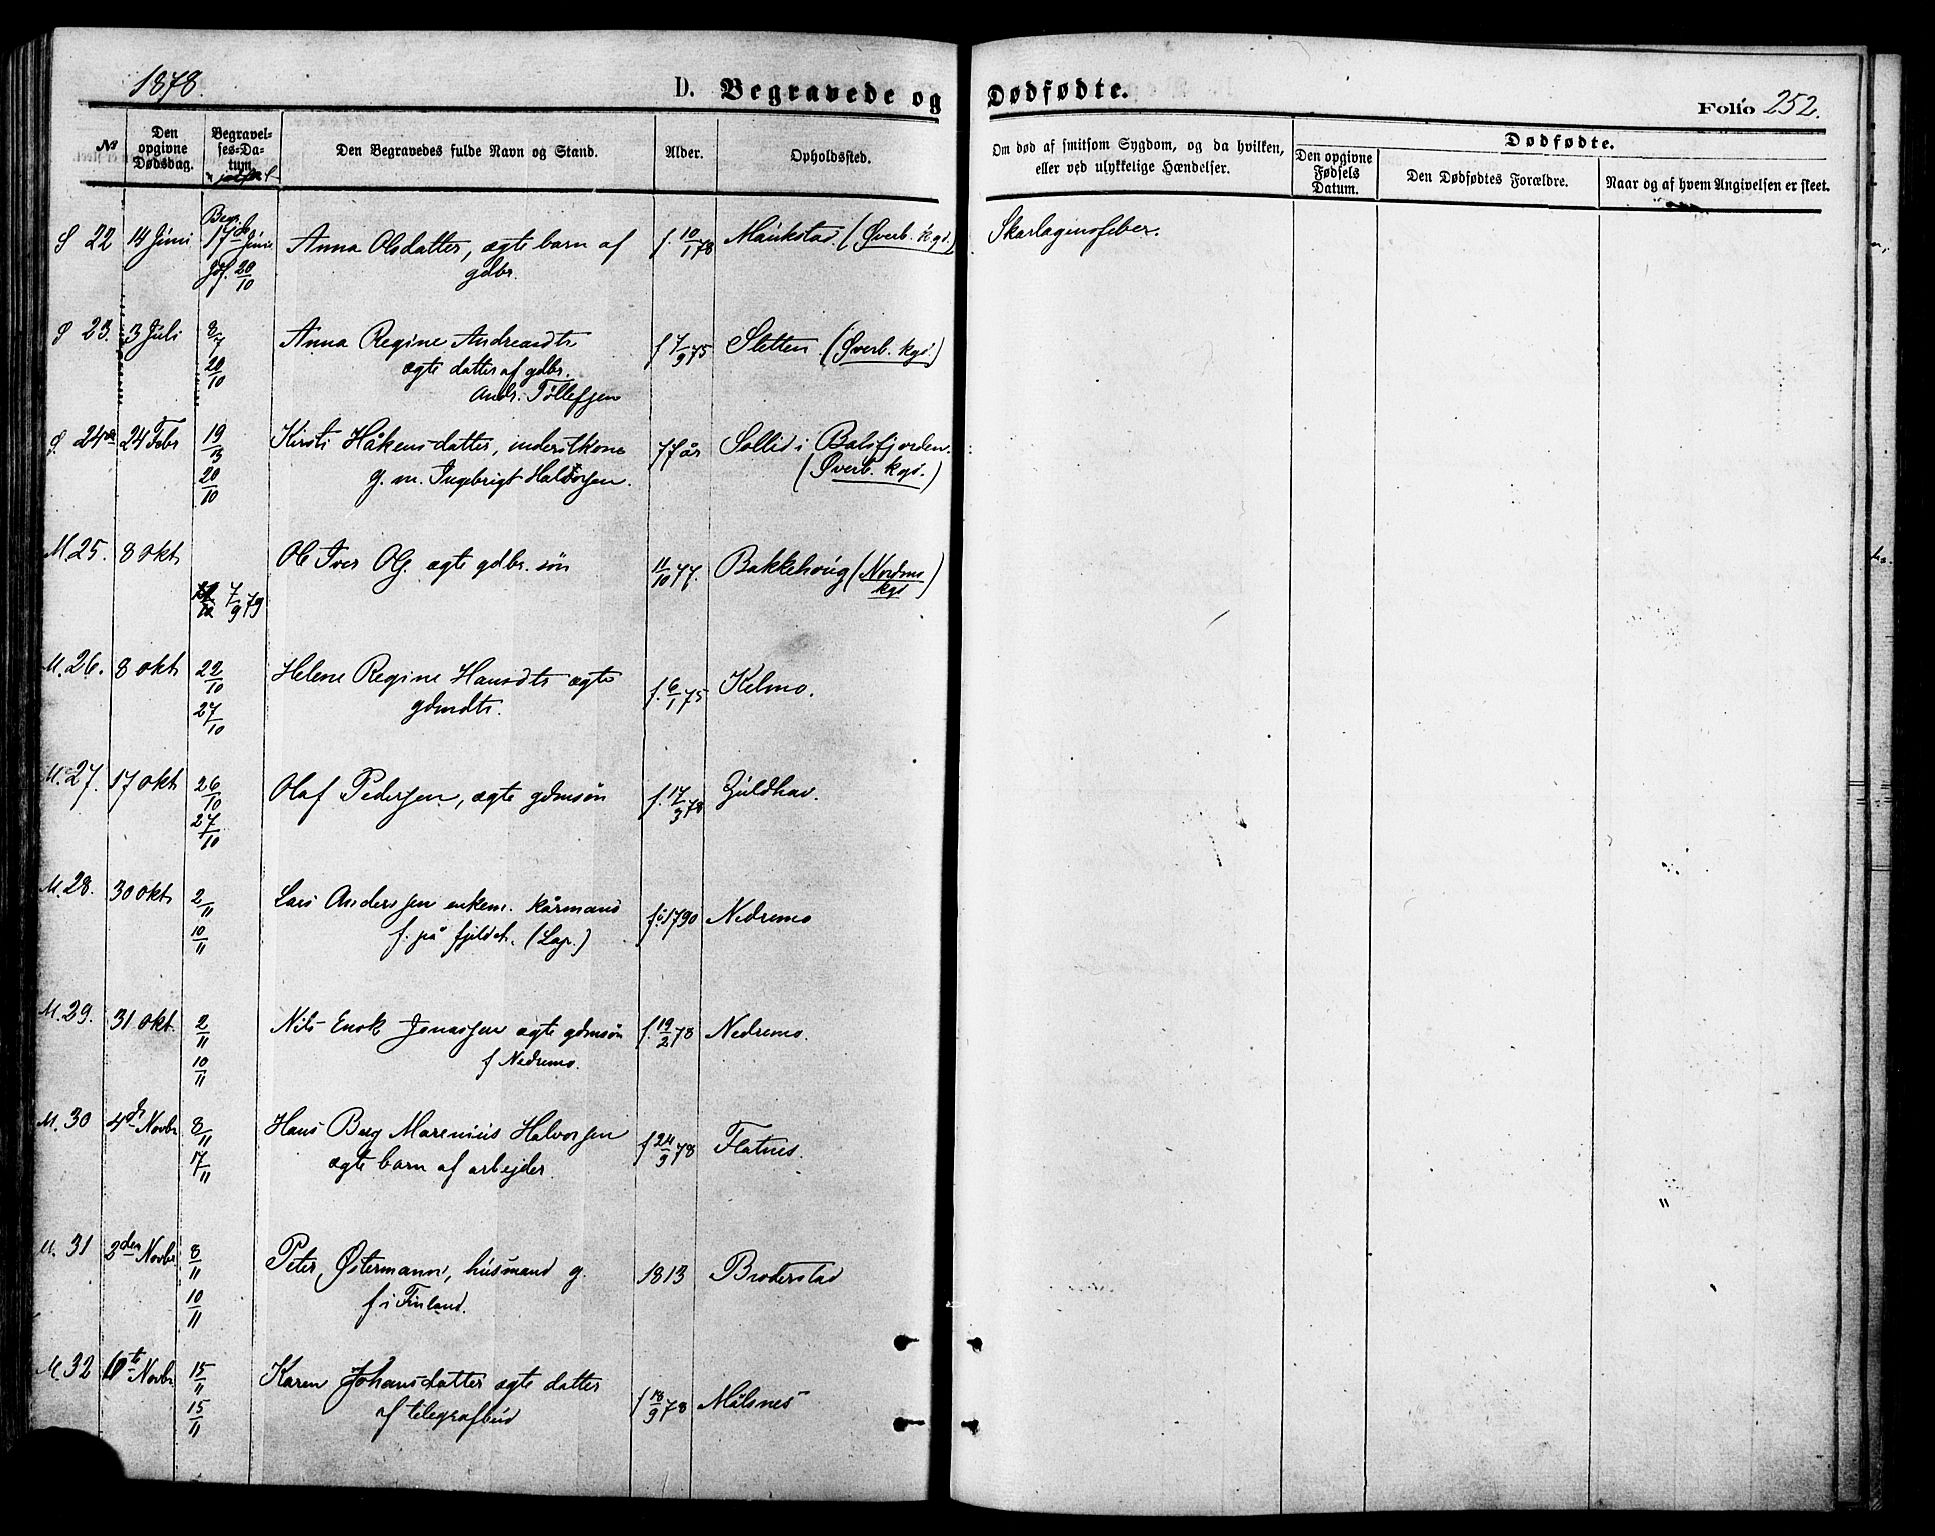 1878.
D. Begravede og Dødfødte.
Folio 252.
No
Den opgivne Dødsdag.
Begravelses-Datum
Den Begravedes fulde Navn og Stand.
Alder.
Opholdssted.
Om død af smitsom Sygdom, og da hvilken, eller ved ulykkelige Hændelser.
Dødfødte.
Den opgivne Fødsels Datum.
Den Dødfødtes Forældre.
Naar og af hvem Angivelsen er skeet.
S 22 14 Juni Begr. 17de Juni Anna Olsdatter, ægte barn af f. 10/1 78 Maukstad. (Øverb. kgd.) Skarlaginsfeber.
Jdf. 20/10 gdbr.
S 23. 3 Juli 8/7 Anna Regine Andreasdtr f 7/9 75 Sletten (Øverb. kgd.)
20/10 ægte datter af gdbr.
Andr. Tollefsen
S. 24 24 Febr 19/3 Kirsti Håkensdatter, inderstkone 77 år Sollid i Balsfjorden.
20/10 g. m. Ingebrigt Halvorsen. (Øverb. kgd.)
M. 25. 8 okt Ole Iver Ols. ægte gdbr. søn 11/10 77. Bakkehoug (Nordmo kgd)
7/9 79
M. 26. 8 okt 22/10 Helene Regine Hansdtr ægte f. 6/1 75 Kelmo.
27/10 gdmdtr.
M. 27. 17 okt 26/10 Olaf Pedersen, ægte gdmsøn f. 17/3 78 Guldhav.
27/10
M. 28. 30 okt 2/11 Lars Anderssen enkem. kårmand f. 1790 Nedremo
10/11 f. på fjeldet. (Lap.)
M. 29. 31 okt 2/11 Nils Enok Jonassen ægte gdmsøn f. 19/2 78 Nedremo.
10/11 f Nedremo.
M. 30 4de Novbr 8/11 Hans Berg Marenius Halvorsen f 24/9 78 Flatnes.
17/11 ægte barn af arbejder
M. 31 3die Novbr 8/11 Peter Østermann, husmand g. 1813 Broderstad
10/11 f. i Finland.
M. 32 Novbr 15/11 Karen Johansdatter ægte datter f 18/9 78 Målsnes
15/11 af telegrafbud